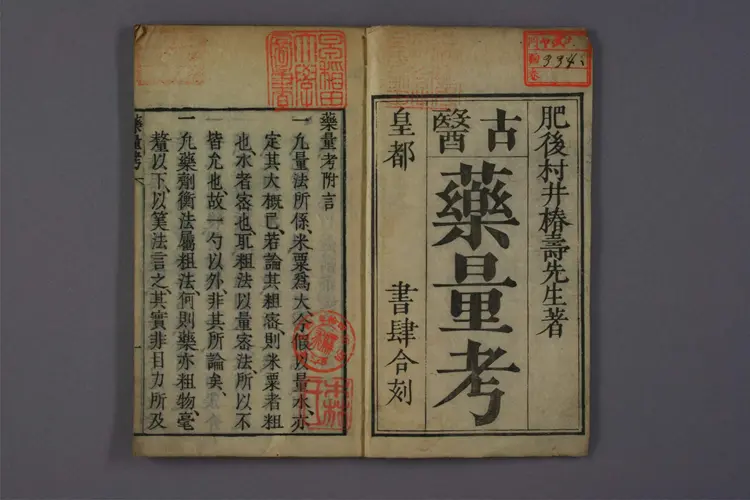 肥後村井椿壽先生著
古醫
藥量考
皇都
書肆合刻
藥量考附言
一凢量法所係、米粟爲大、今假以量水、亦
定其大概已、若論其粗密、則米粟者粗
也、水者密也、取粗法以量密法、所以不
皆允也、故一勺以外、非其所論矣、
一凢藥劑衡法屬粗法、何則藥亦粗物、毫
釐以下、以筭法言之、其實非目力所及
藥量考